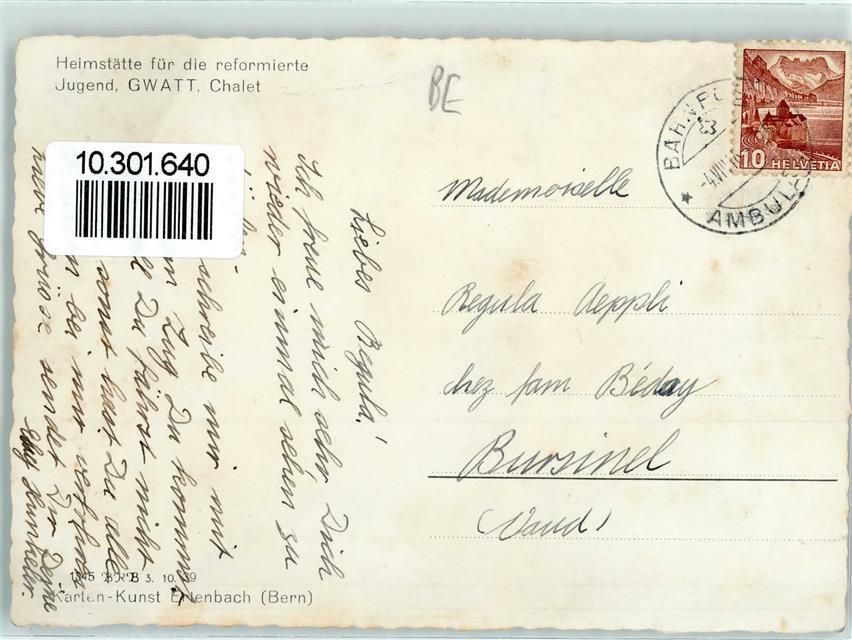 Heimstätte für die reformierte
Jugend, GWATT, Chalet
BE
10.301.640
10 HELVETIA
AMBUL
Mademoiselle
Regula Aeppli
chez fam Béday
Bursinel
(Vaud)
Liebes Regula!
Ich freue mich sehr Dich
wieder einmal sehen zu
schreibe mir mit
Zug Du kommst
Du fährst nicht
sonst hast Du alle
bei mir
Grüsse sendet Dir Deine
Hunkeler.
1345 BRB 3. 10. 39
Karten-Kunst Erlenbach (Bern)